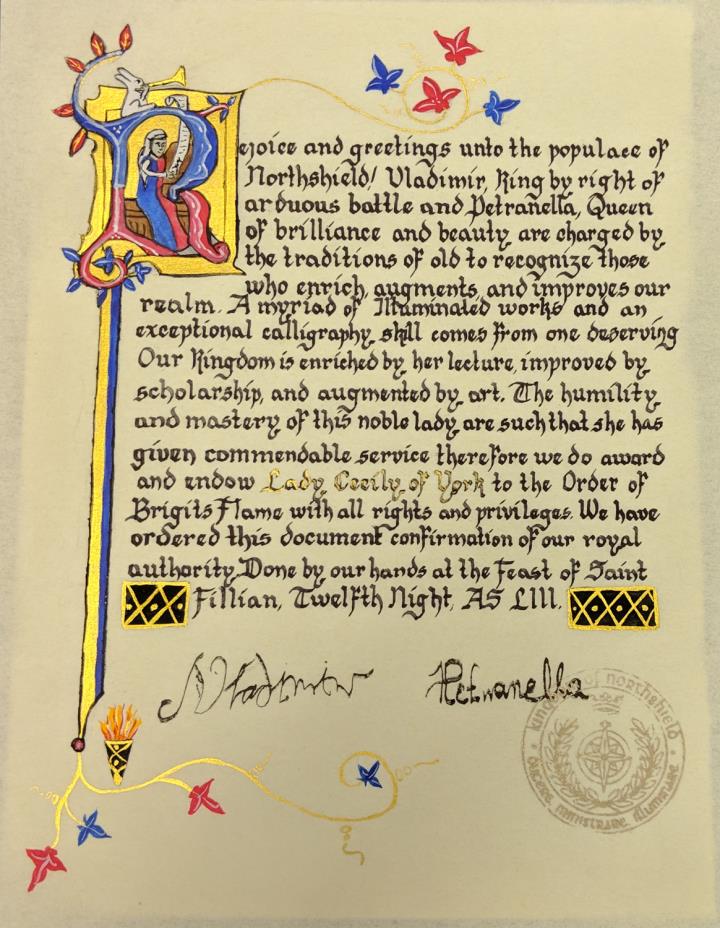 Rejoice and greetings unto the populace of
Northshield! Vladimir, King by right of
arduous battle and Petranella, Queen
of brilliance and beauty are charged by
the traditions of old to recognize those
who enrich, augments, and improves our
realm. A myriad of Illuminated works and an
exceptional calligraphy skill comes from one deserving
Our Kingdom is enriched by her lecture, improved by
scholarship, and augmented by art. The humility
and mastery of this noble lady are such that she has
given commendable service therefore we do award
and endow Lady Cecily of York to the Order of
Brigits Flame with all rights and privileges. We have
ordered this document confirmation of our royal
authority. Done by our hands at the Feast of Saint
Fillian, Twelfth Night, AS LIII.
Vladimir Petranella
kingdom of northshield
ducere ministrare illuminare